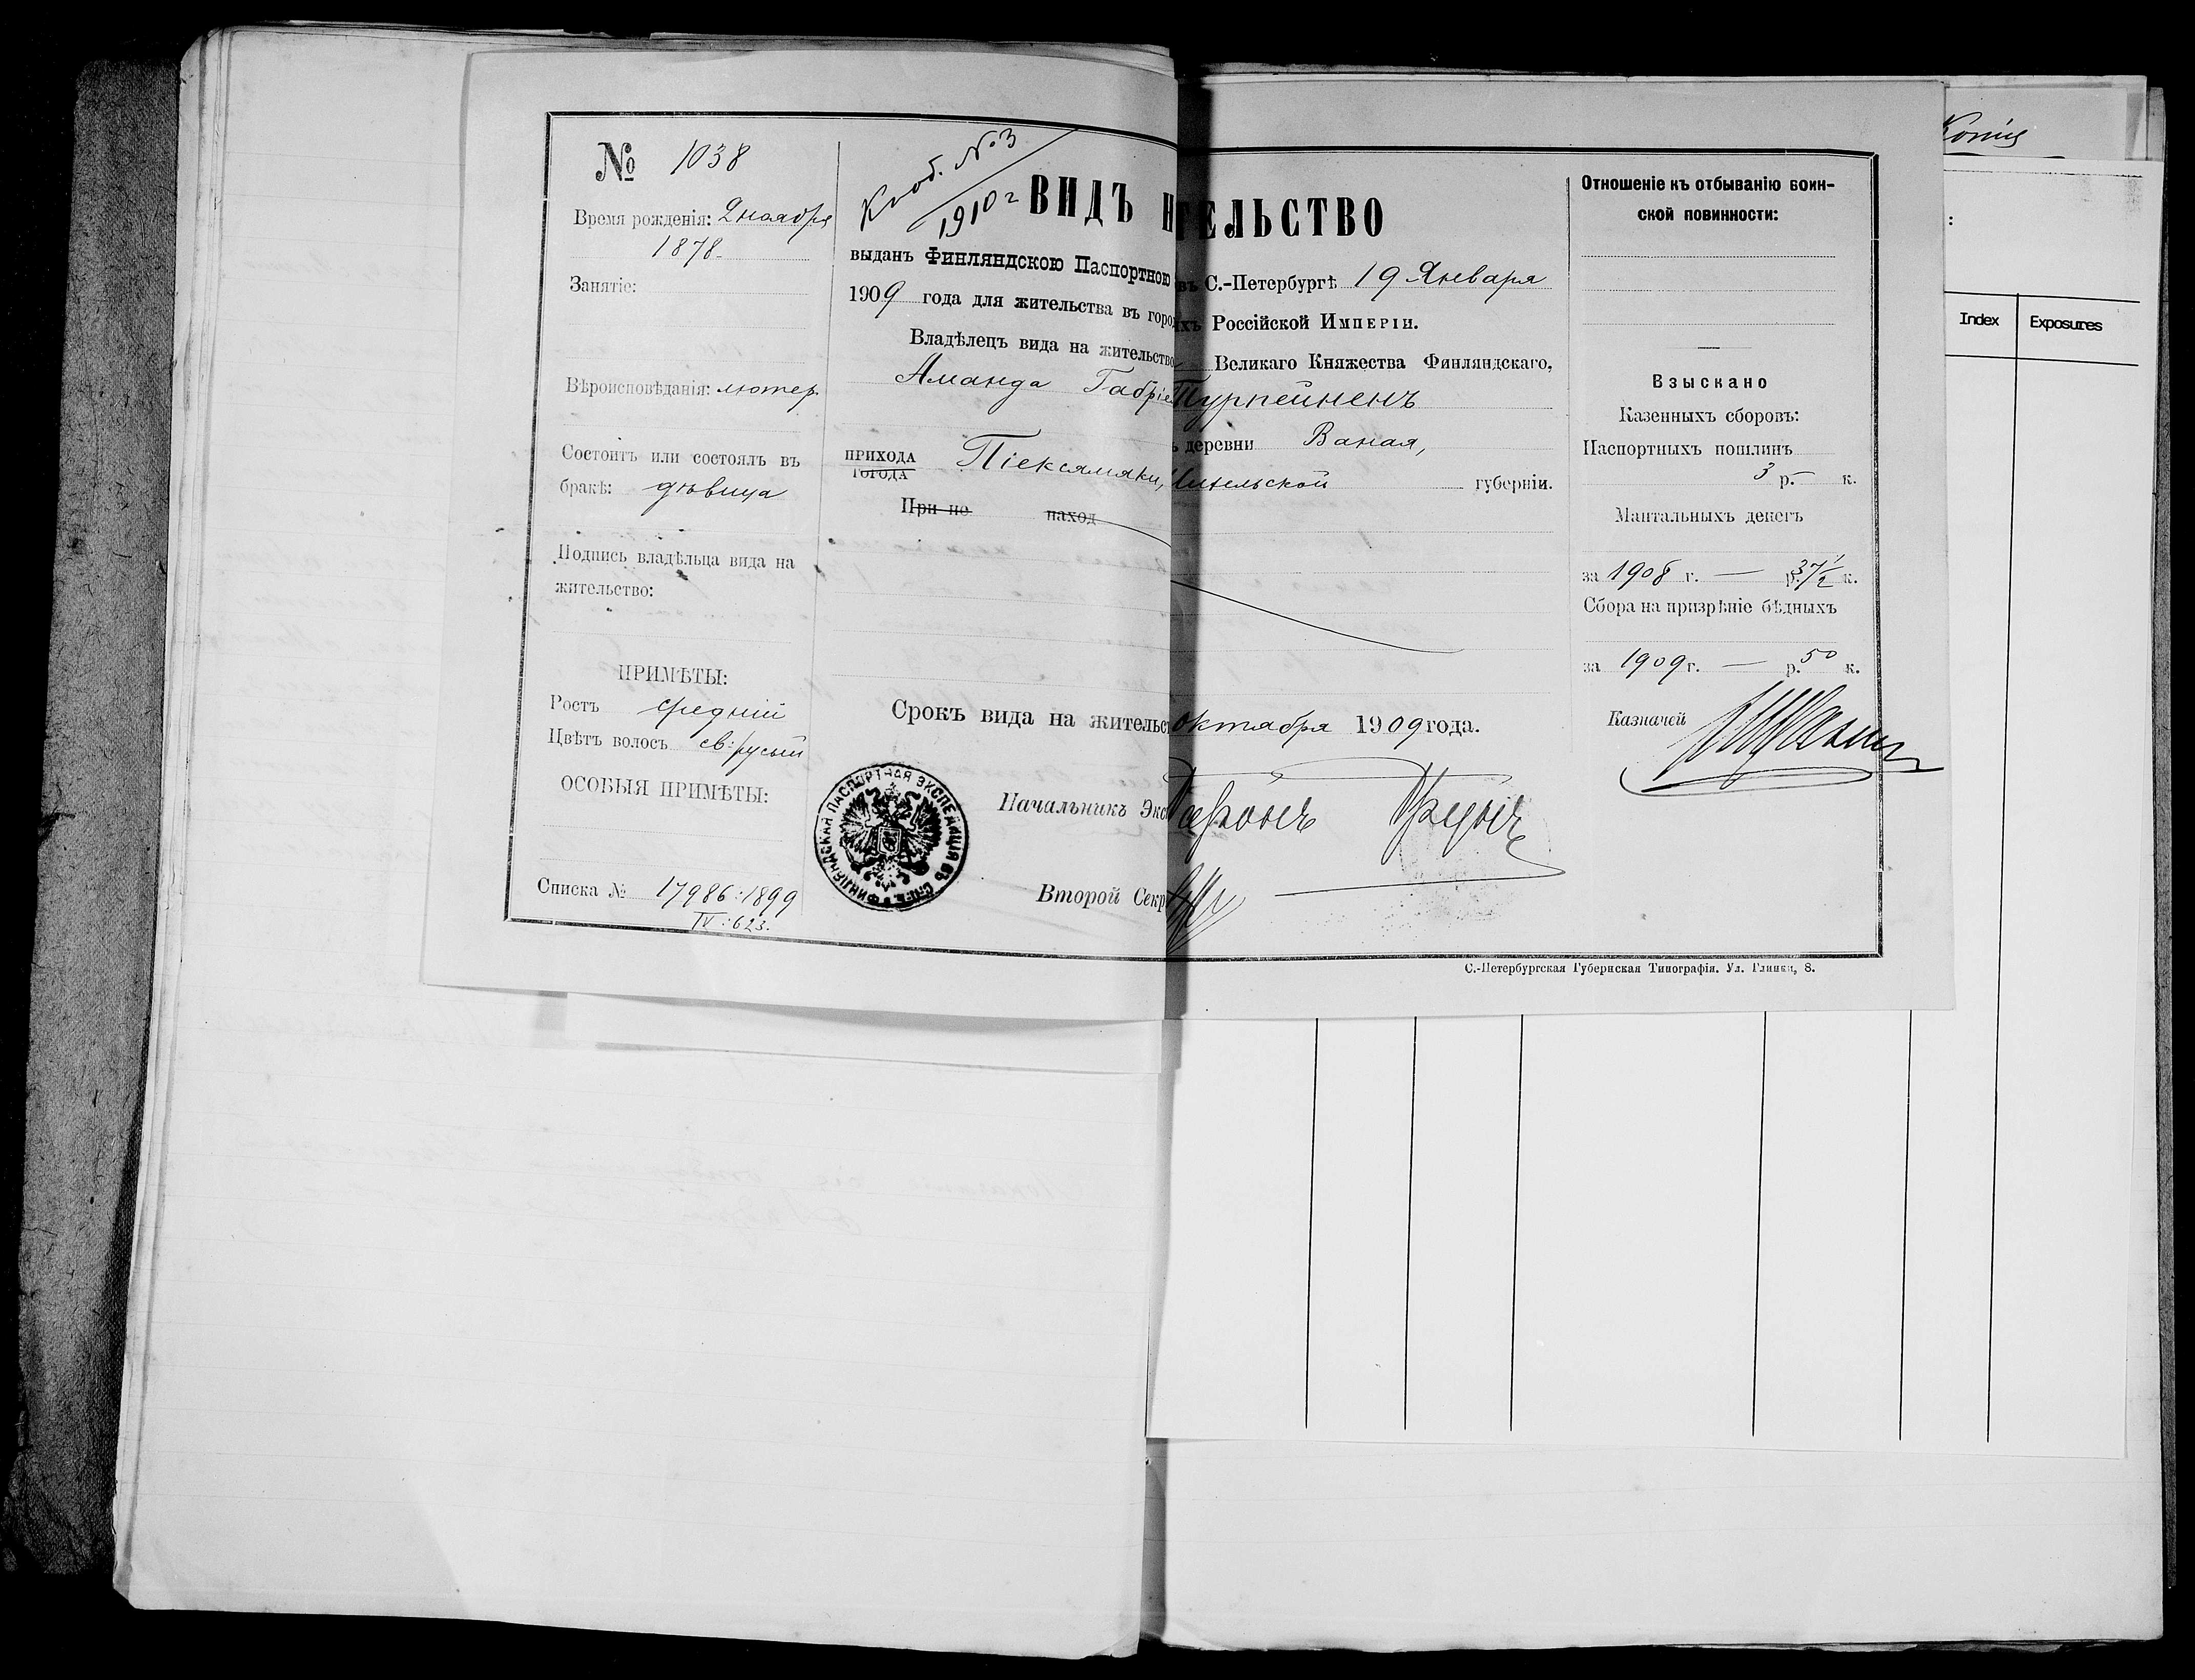 № 1038
Время рожденія: 2 ноября
1878
Занятіе:
Вѣроисповѣданія: лютер.
Состоитъ или состоялъ въ
бракѣ: дѣвица
Подпись владѣльца вида на
жительство:
ПРИМѢТЫ:
Ростъ средній
Цвѣтъ волосъ св: русый
ОСОБЫЯ ПРИМѢТЫ:
Списка № 17986:1899
IV:623.
№3
1910 г
ВИДЪ Н ТЕЛЬСТВО
выданъ Финляндскою Паспортною въ С.-Петербургѣ 19 Января
1909 года для жительства въ горо ихъ Россійской Имперіи.
Владѣлецъ вида на жительство Великаго Княжества Финляндскаго,
Аманда Габріе Турпейненъ
деревни Ваная,
ПРИХОДА
ГОРОДА
Піексямяки, ительской губерніи.
При не наход
Срокъ вида на жительс октября 1909 года.
Начальникъ Экс
Второй Секр
ФИНЛЯНДСКАЯ ПАСПОРТНАЯ ЭКСПЕДИЦІЯ ВЪ СПБ
Отношеніе къ отбыванію воин-
ской повинности:
Взыскано
Казенныхъ сборовъ:
Паспортныхъ пошлинъ
3 р. — к.
Мантальныхъ денегъ
за 1908 г. — р. 37 1/2 к.
Сбора на призрѣніе бѣдныхъ
за 1909 г. — р. 50 к.
Казначей
С.-Петербургская Губернская Типографія. Ул. Глинки, 8.
:
Index
Exposures